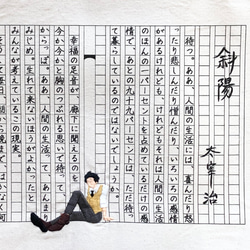 斜陽
太宰治
待つ。ああ、人間の生活には、喜んだり怒
ったり悲しんだり憎んだり、いろいろの感情
があるけれども、けれどもそれは人間の生活
のほんの一パーセントを占めているだけの感
情で、あとの九十九パーセントは、ただ待っ
て暮らしているのではないでしょうか。
幸福の足音が、廊下に聞えるのを
今か今かと胸のつぶれる思いで待って、
からっぽ。ああ、人間の生活って、あんまり
みじめ。生れて来ないほうがよかったと
みんなが考えているこの現実。
そうして毎日、朝から晩まで、はかなく何